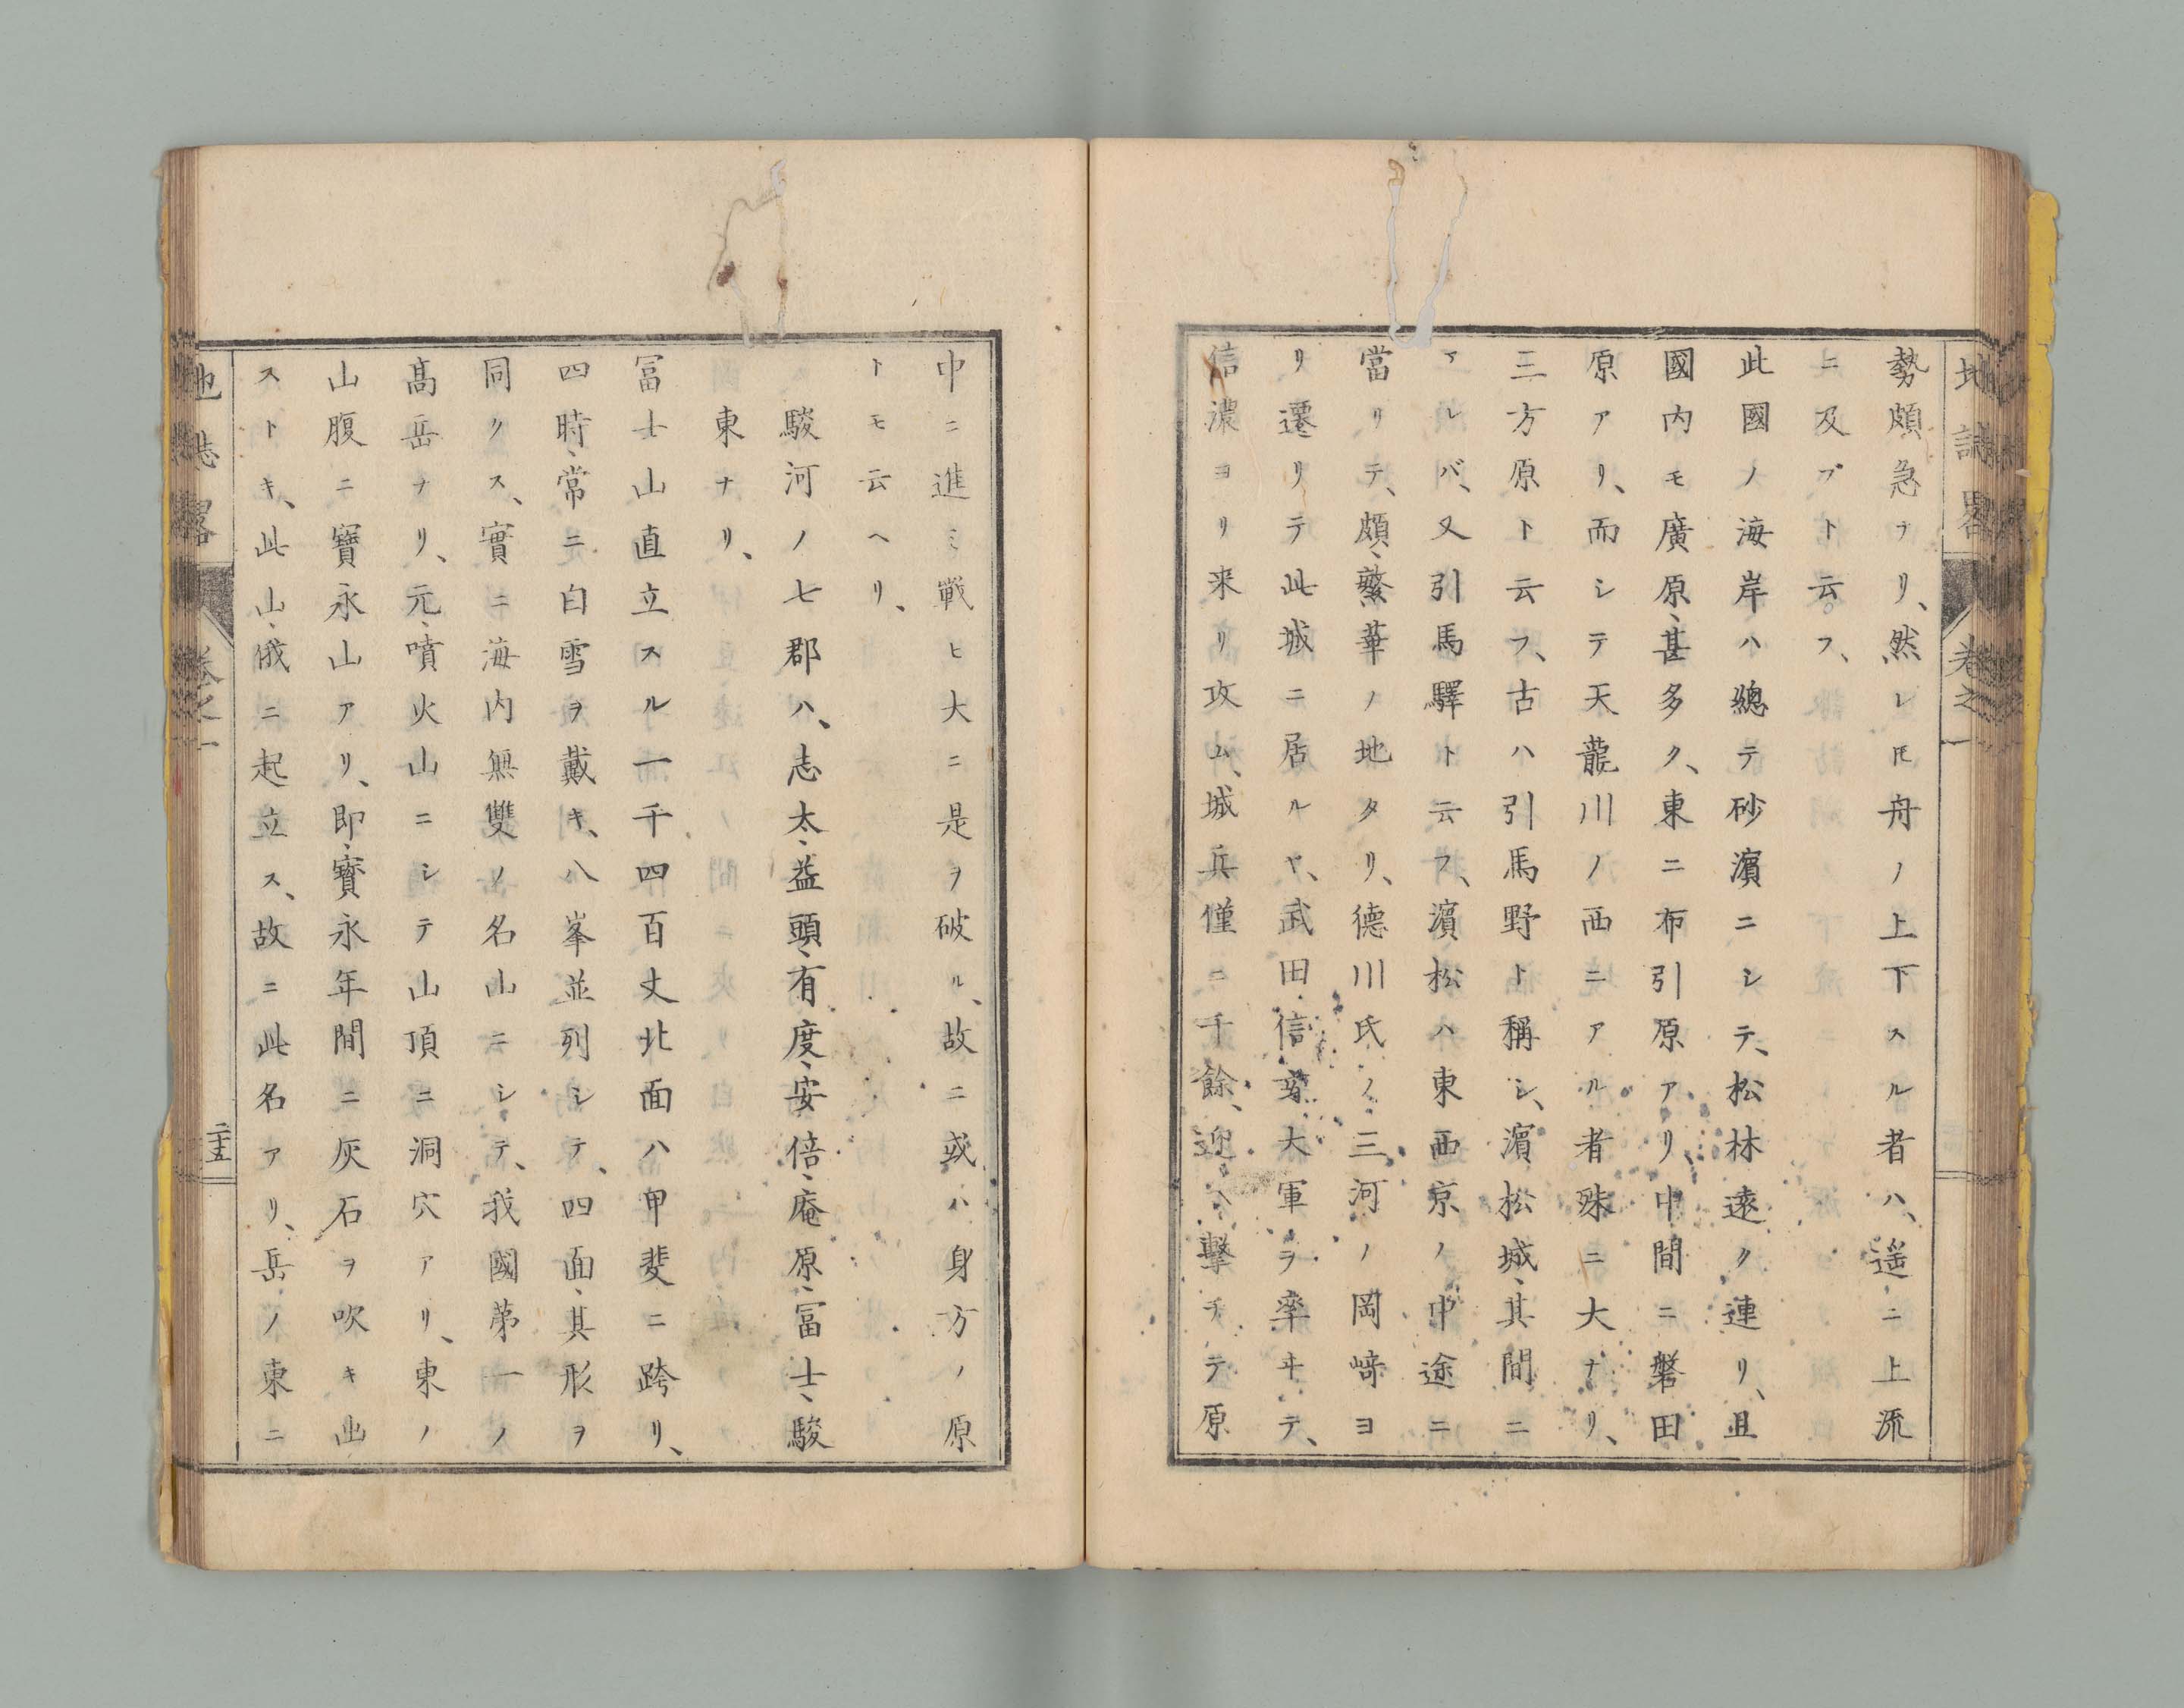 地誌畧 卷之一
勢頗急ナリ、然レ𪜈舟ノ上下スル者ハ、遥ニ上流
ニ及ブト云フ、
此國ノ海岸ハ總テ砂濱ニシテ、松林遠ク連リ、且
國内モ廣原、甚多ク、東ニ布引原アリ、中間ニ磐田
原アリ、而シテ天龍川ノ西ニアル者殊ニ大ナリ、
三方原ト云フ、古ハ引馬野ト稱シ、濵松城、其間ニ
アレバ、又引馬驛ト云フ、濵松ハ東西京ノ中途ニ
當リテ、頗、繁華ノ地タリ、德川氏ノ三河ノ岡﨑ヨ
リ遷リテ此城ニ居ルヤ、武田信玄大軍ヲ率ヰテ、
信濃ヨリ来リ攻ム、城兵僅ニ千餘、迎ヘ撃チテ原
中ニ進ミ戰ヒ大ニ是ヲ破ル、故ニ或ハ身方ノ原
トモ云ヘリ、
駿河ノ七郡ハ、志太、益頭、有度、安倍、庵原、冨士、駿
東ナリ、
冨士山直立スル一千四百丈北面ハ甲斐ニ跨リ、
四時、常ニ白雪ヲ戴キ、八峯並列シテ、四面、其形ヲ
同クス、實ニ海内無雙ノ名山ニシテ、我國第一ノ
髙岳ナリ、元、噴火山ニシテ山頂ニ洞穴アリ、東ノ
山腹ニ寶永山アリ、即、寶永年間ニ灰石ヲ吹キ出
ストキ、此山、俄ニ起立ス、故ニ此名アリ、岳ノ東ニ
地誌畧 卷之一 二十五